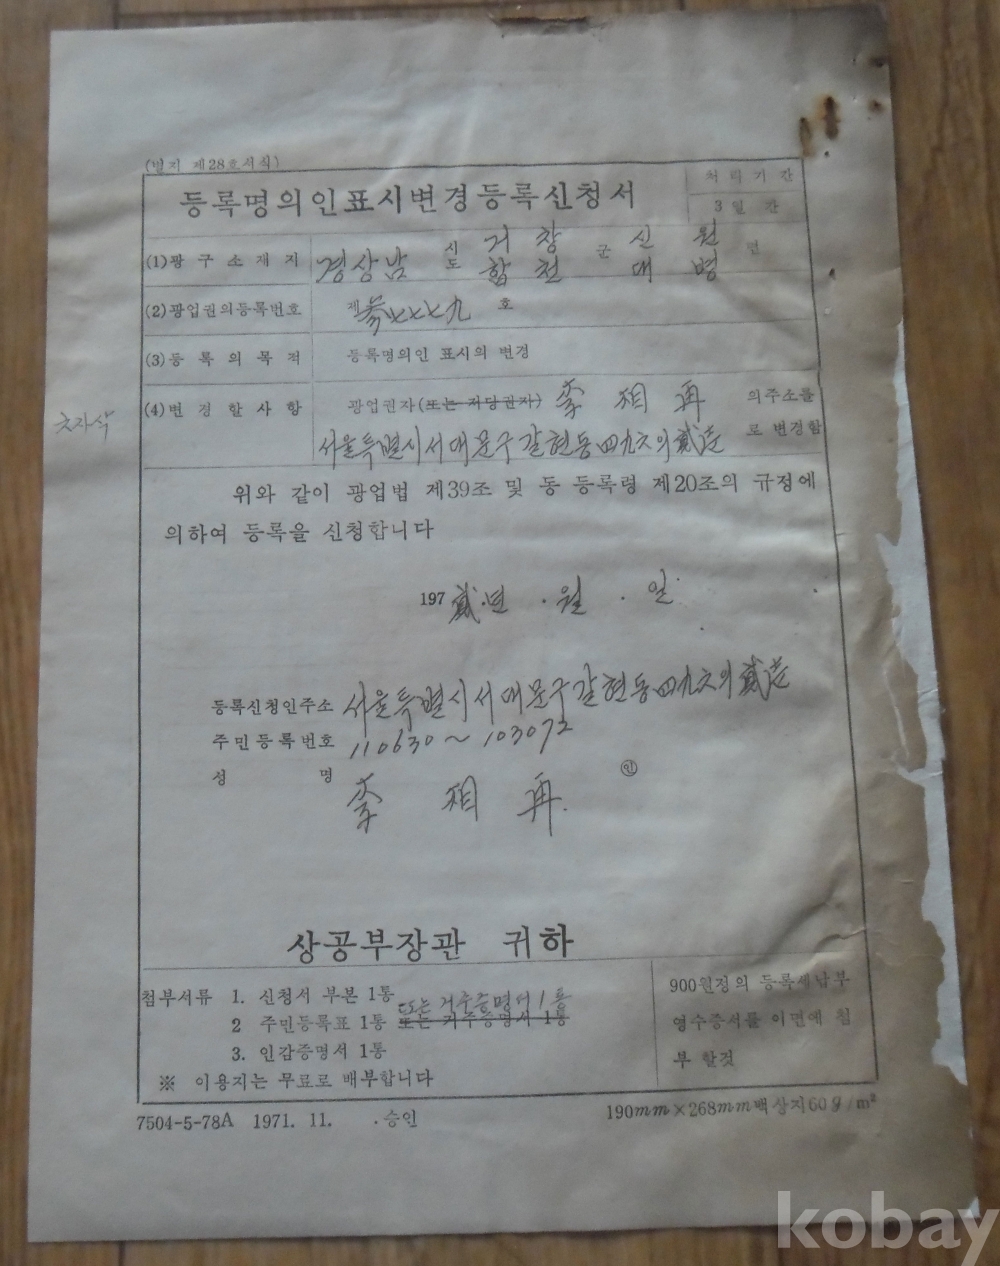 (별지 제28호서식)
등록명의인표시변경등록신청서
처리기간
3일간
(1)광구소재지 경상남 시도 거창 군 신원 면
합천 대병
(2)광업권의등록번호 제 参七七七九 호
(3)등록의목적 등록명의인 표시의 변경
(4)변경할사항 광업권자(또는 저당권자) 李相再 의주소를
서울특별시서대문구갈현동四九六의貳 로 변경함
위와 같이 광업법 제39조 및 동 등록령 제20조의 규정에
의하여 등록을 신청합니다
197貳.년 . 월 . 일
등록신청인주소 서울특별시서대문구갈현동四九六의貳
주민등록번호 110630~103072
성명 李相再 ㊞
상공부장관 귀하
첨부서류 1. 신청서 부본 1통
또는 거주증명서 1통
2 주민등록표 1통 또는 거주증명서 1통
3. 인감증명서 1통
※ 이용지는 무료로 배부합니다
900원정의 등록세납부
영수증서를 이면에 첨
부 할것
7504-5-78A 1971. 11. .승인
190mm×268mm백상지60g/m²
kobay